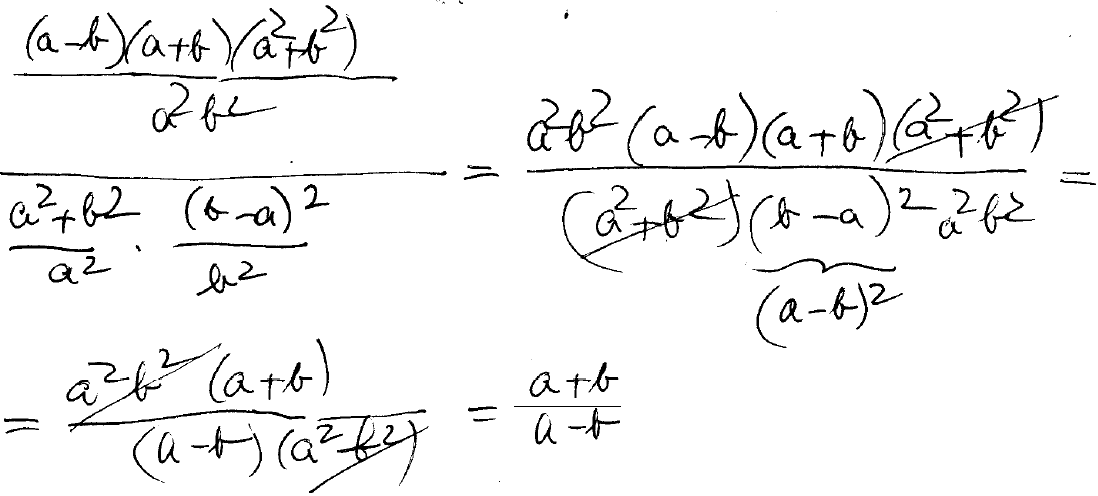 \frac{\frac{(a-b)(a+b)(a^2+b^2)}{a^2b^2}}{\frac{a^2+b^2}{a^2} \cdot \frac{(b-a)^2}{b^2}} = \frac{a^2b^2(a-b)(a+b)(a^2+b^2)}{(a^2+b^2)\underbrace{(b-a)^2}_{(a-b)^2}a^2b^2} =
= \frac{a^2b^2(a+b)}{(a-b)(a^2b^2)} = \frac{a+b}{a-b}